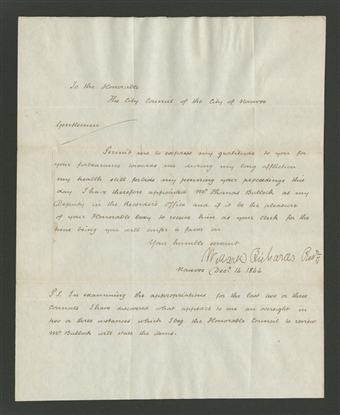 To the Honorable
The City Council of the City of Nauvoo
Gentlemen
Permit me to express my gratitude to you for
your forbearance towards me during my long affliction
my health still forbids my penning your proceedings this
day I have therefore appointed Mr Thomas Bullock as my
Deputy in the Recorders Office and if it be the pleasure
of your Honorable body to receive him as your clerk for the
time being you will confer a favor on
Your humble servant
Willard Richards
Nauvoo Decr 14 1844
P.S. In examining the appropriations for the last two or three
Councils I have discovered what appears to me an oversight in
two or three instances, which I beg the Honorable Council to review
Mr Bullock will state the same.